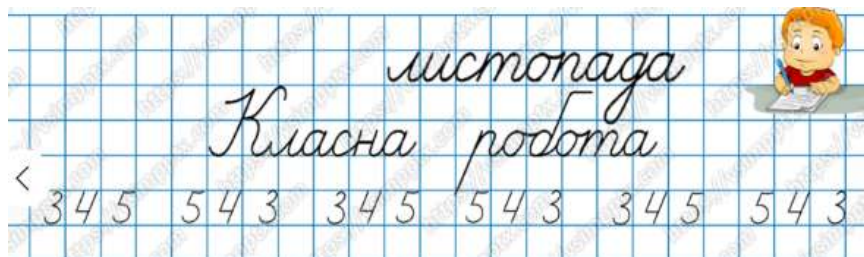 листопада
Класна робота
3 4 5 5 4 3 3 4 5 5 4 3 3 4 5 5 4 3